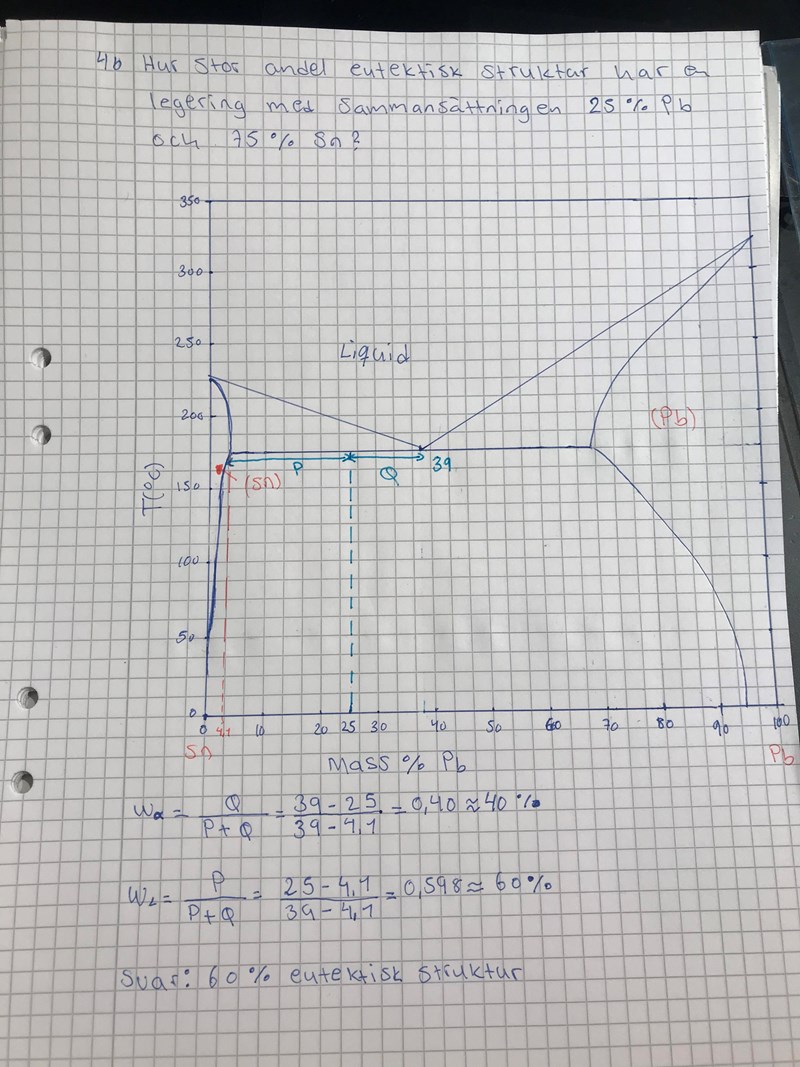 4b Hur stor andel eutektisk struktur har en
legering med sammansättningen 25% Pb
och 75% Sn?
350
300
250
200
150
100
50
0
T(°C)
Liquid
(Pb)
P
Q
39
(Sn)
0 4,1 10 20 25 30 40 50 60 70 80 90 100
Sn
Pb
Mass % Pb
Wα = Q / P+Q = 39-25 / 39-4,1 = 0,40 ≈ 40%
WL = P / P+Q = 25-4,1 / 39-4,1 = 0,598 ≈ 60%
Svar: 60% eutektisk struktur